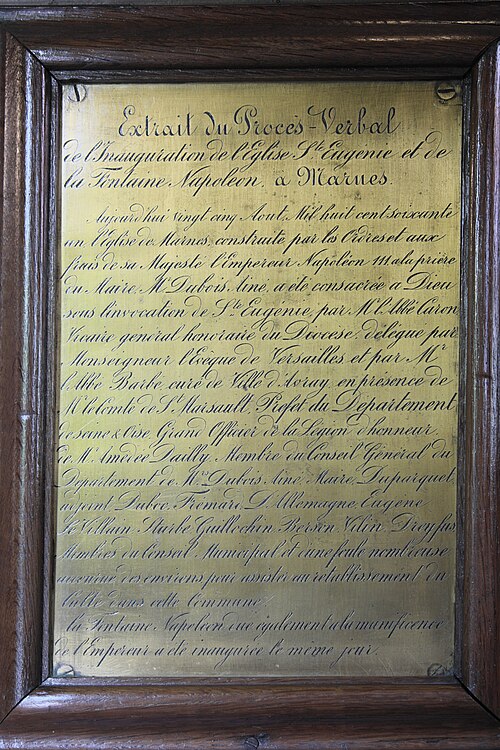 Extrait du Procès-Verbal
de l'Inauguration de l'Eglise Ste Eugénie et de
la Fontaine Napoléon, à Marnes.
Aujourd'hui vingt cinq Aout, Mil huit cent soixante
un l'église de Marnes, construite par les Ordres et aux
frais de sa Majesté l'Empereur Napoléon III a la prière
du Maire, Mr Dubois, Ainé, a été consacrée à Dieu
sous l'invocation de Ste Eugénie, par Mr l'Abbé Caron
Vicaire général honoraire du Diocèse, délégué par
Monseigneur l'Evêque de Versailles et par Mr
l'Abbé Barbé, curé de Ville d'Avray, en présence de
Mr le Comte de St Marsault, Préfet du Département
de Seine & Oise, Grand Officier de la Légion d'honneur,
de Mr Amédée Dailly, Membre du Conseil Général du
Département de Mrs Dubois, Ainé, Maire, Duparquet,
adjoint Duboc, Frémard, D'Allemagne, Eugène
Le Villain, Barbé, Guillochin, Berson, Vilin, Dreyfus
Membres du Conseil Municipal et d'une foule nombreuse
accourue des environs pour assister au rétablissement du
Culte dans cette Commune.
La Fontaine Napoléon due également à la munificence
de l'Empereur a été inaugurée le même jour.